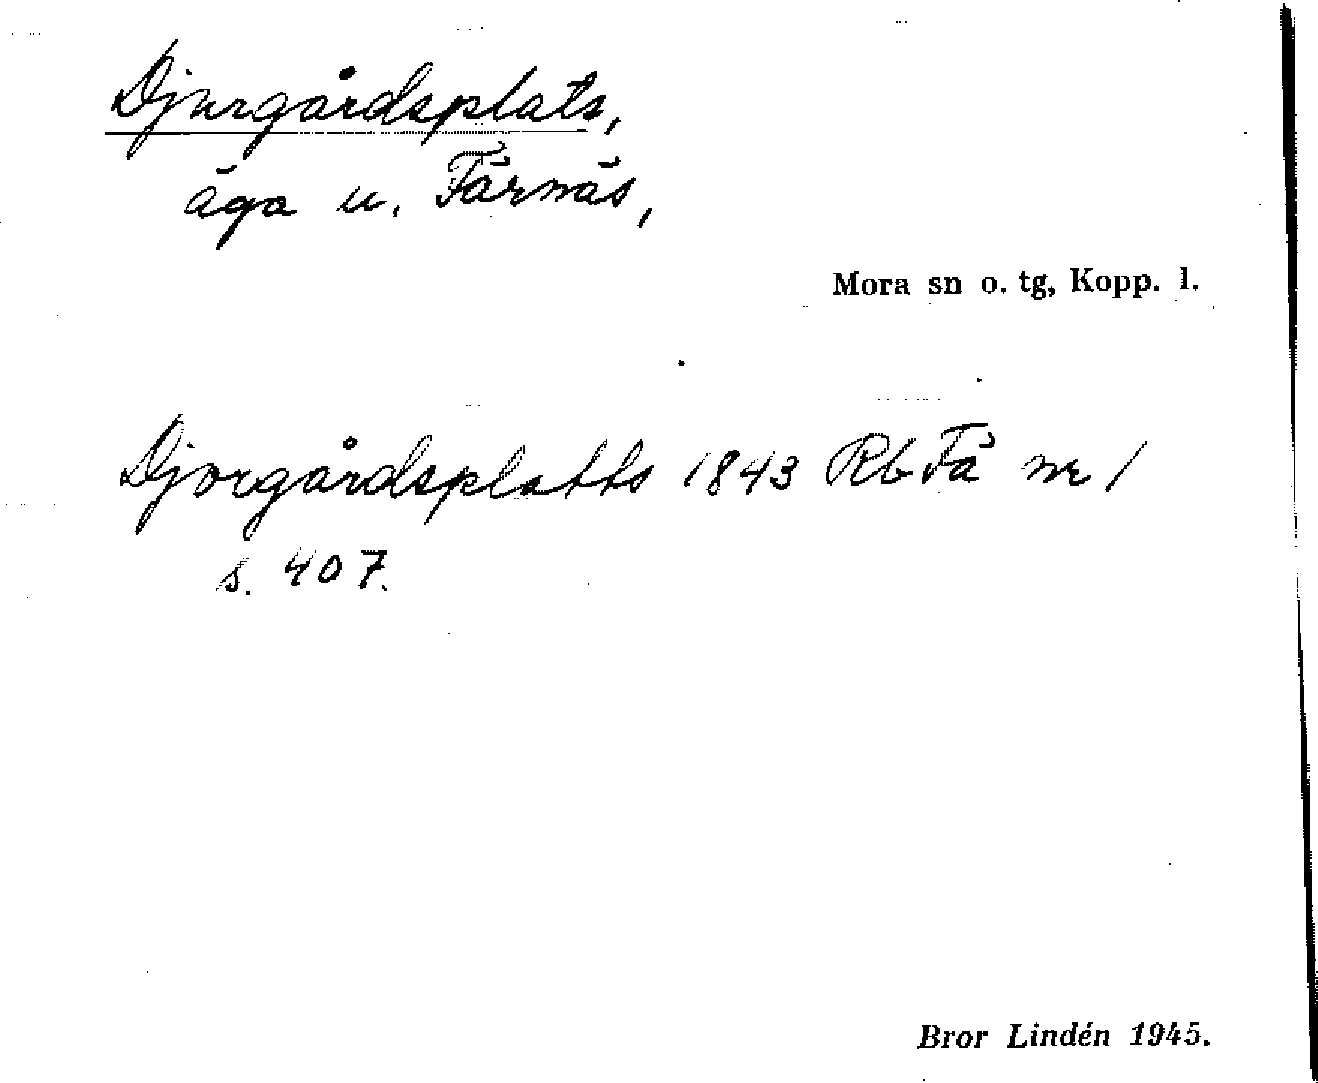 Djurgårdsplats,
äga u. Färnäs,
Mora sn o. tg, Kopp. l.
Djorgårdsplatts 1843 Rb Fä nr 1
s. 407.
Bror Lindén 1945.